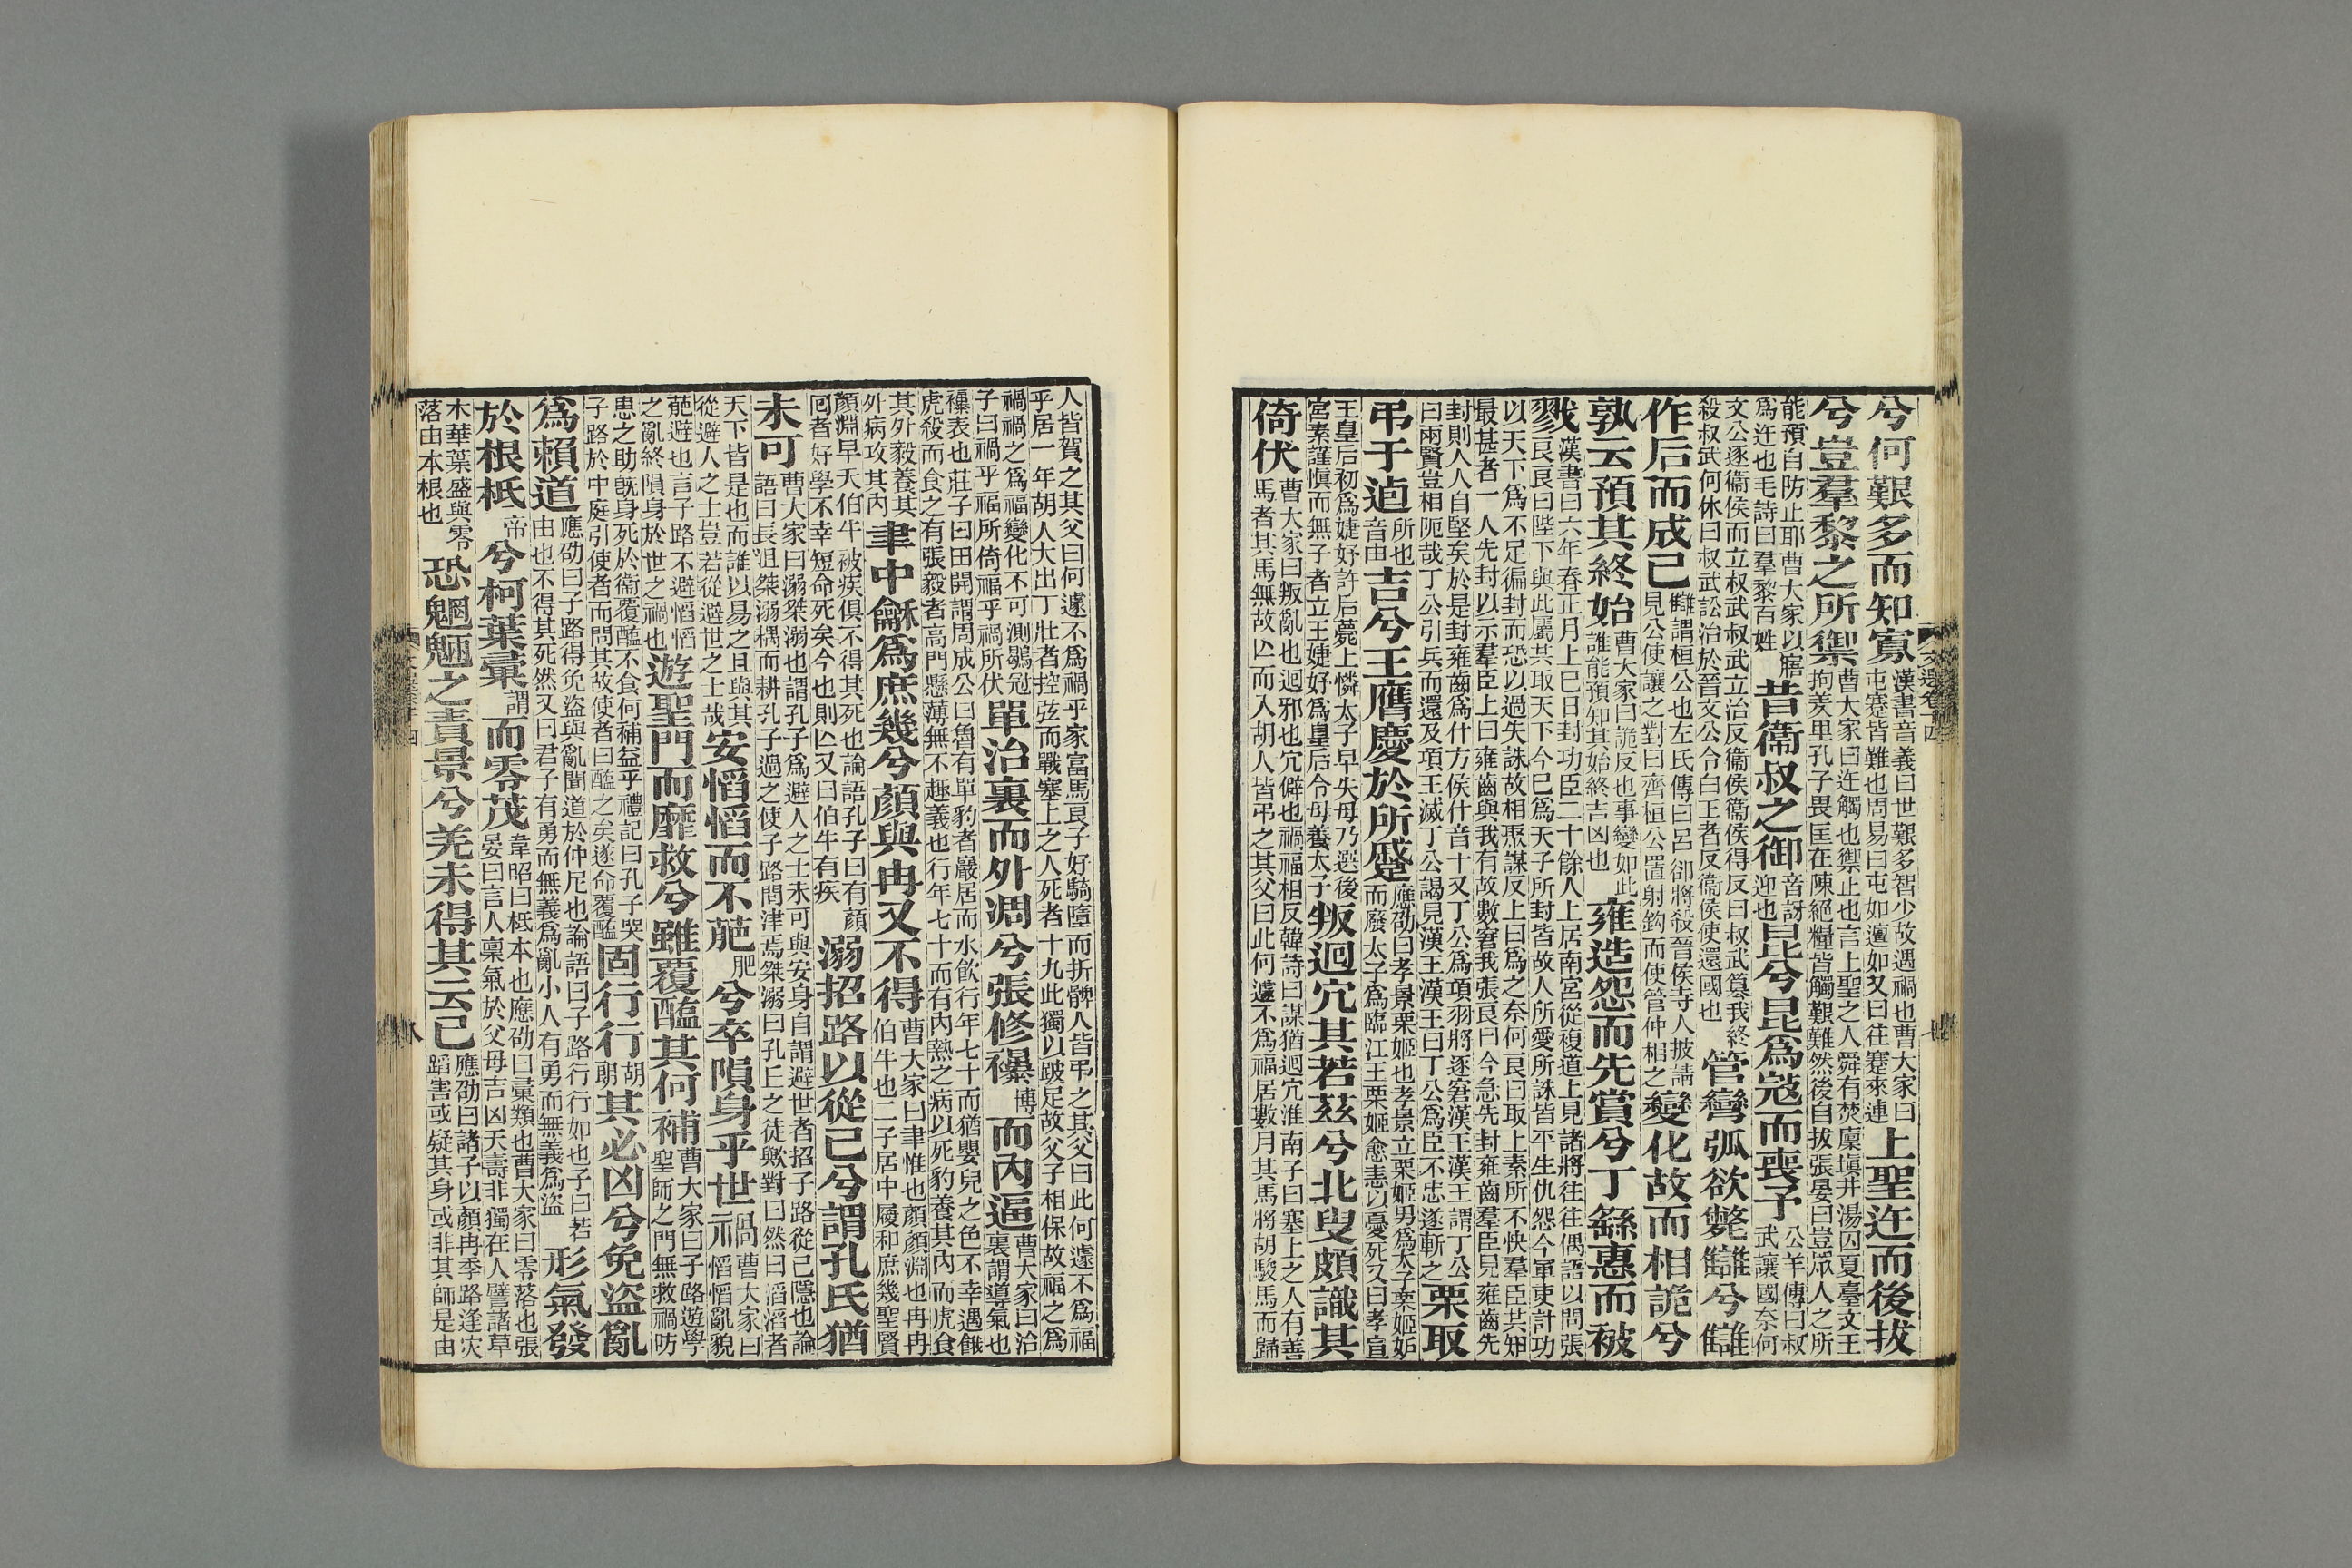 兮何艱多而知寡漢書音義曰世艱多智少故遇禍也曹大家曰屯蹇皆難也周易曰屯如邅如又曰往蹇來連上聖迕而後拔
兮豈羣黎之所禦曹大家曰迕觸也禦止也言上聖之人舜有焚廩塡井湯囚夏臺文王拘羑里孔子畏匡在陳絕糧皆觸艱難然後自拔張晏曰豈眾人之所
能預自防止耶曹大家以寤爲迕也毛詩曰羣黎百姓昔衞叔之御音訝迎也昆兮昆爲寇而喪予公羊傳曰叔武讓國奈何
文公逐衞侯而立叔武叔武立治反衞侯衞侯得反曰叔武簒我終殺叔武何休曰叔武訟治於晉文公令白王者反衞侯使還國也管彎弧欲斃讎兮讎
作后而成己讎謂桓公也左氏傳曰呂卻將殺晉侯寺人披請見公使讓之對曰齊桓公置射鈎而使管仲相之變化故而相詭兮
孰云預其終始曹大家曰詭反也事變如此誰能預知其始終吉凶也雍造怨而先賞兮丁繇惠而被
戮漢書曰六年春正月上巳日封功臣二十餘人上居南宮從複道上見諸將往往偶語以問張良良曰陛下與此屬共取天下今已爲天子所封皆故人所愛所誅皆平生仇怨今軍吏計功
以天下爲不足徧封而恐以過失誅故相聚謀反上曰爲之奈何良曰取上素所不快羣臣共知最甚者一人先封以示羣臣上曰雍齒與我有故數窘我張良曰今急先封雍齒羣臣見雍齒先
封則人人自堅矣於是封雍齒爲什方侯什音十又丁公爲項羽將逐窘漢王漢王謂丁公曰兩賢豈相阨哉丁公引兵而還及項王滅丁公謁見漢王漢王曰丁公爲臣不忠遂斬之栗取
弔于逌所也音由吉兮王膺慶於所蹙應劭曰孝景栗姬也孝景立栗姬男爲太子栗姬妬而廢太子爲臨江王栗姬愈恚以憂死又曰孝宣
王皇后初爲婕妤許后薨上憐太子早失母乃選後宮素謹愼而無子者立王婕妤爲皇后令母養太子叛迴宂其若茲兮北叟頗識其
倚伏曹大家曰叛亂也迴邪也宂僻也禍福相反韓詩曰謀猶迴宂淮南子曰塞上之人有善馬者其馬無故亾而入胡人皆弔之其父曰此何遽不爲福居數月其馬將胡駿馬而歸
人皆賀之其父曰何遽不爲禍乎家富馬良子好騎墮而折髀人皆弔之其父曰此何遽不爲福乎居一年胡人大出丁壯者控弦而戰塞上之人死者十九此獨以跛足故父子相保故福之爲
禍禍之爲福變化不可測鶡冠子曰禍乎福所倚福乎禍所伏單治裏而外凋兮張修襮博而內逼曹大家曰治裏謂導氣也
襮表也莊子曰田開謂周成公曰魯有單豹者巖居而水飲行年七十而猶嬰兒之色不幸遇餓虎殺而食之有張毅者高門懸薄無不趣義也行年七十而有內熱之病以死豹養其內而虎食
其外毅養其外病攻其內聿中龢爲庶幾兮顏與冉又不得曹大家曰聿惟也顏顏淵也冉冉伯牛也二子居中履和庶幾聖賢
顏淵早夭伯牛被疾俱不得其死也論語孔子曰有顏囘者好學不幸短命死矣今也則亾又曰伯牛有疾溺招路以從己兮謂孔氏猶
未可曹大家曰溺桀溺也謂孔子爲避人之士未可與安身自謂避世者招子路從己隱也論語曰長沮桀溺耦而耕孔子過之使子路問津焉桀溺曰孔丘之徒歟對曰然曰滔滔者
天下皆是也而誰以易之且與其從避人之士豈若從避世之士哉安慆慆而不萉肥兮卒隕身乎世禍曹大家曰慆慆亂貌
萉避也言子路不避慆慆之亂終隕身於世之禍也遊聖門而靡救兮雖覆醢其何補曹大家曰子路遊學聖師之門無救禍防
患之助旣身死於衞覆醢不食何補益乎禮記曰孔子哭子路於中庭引使者而問其故使者曰醢之矣遂命覆醢固行行胡朗其必凶兮免盜亂
爲賴道應劭曰子路得免盜與亂聞道於仲尼也論語曰子路行行如也子曰若由也不得其死然又曰君子有勇而無義爲亂小人有勇而無義爲盜形氣發
於根柢帝兮柯葉彙謂而零茂韋昭曰柢本也應劭曰彙類也曹大家曰零落也張晏曰言人稟氣於父母吉凶夭壽非獨在人譬諸草
木華葉盛與零落由本根也恐魍魎之責景兮羌未得其云已應劭曰諸子以顏冉季路逢災蹈害或疑其身或非其師是由
文選卷十四